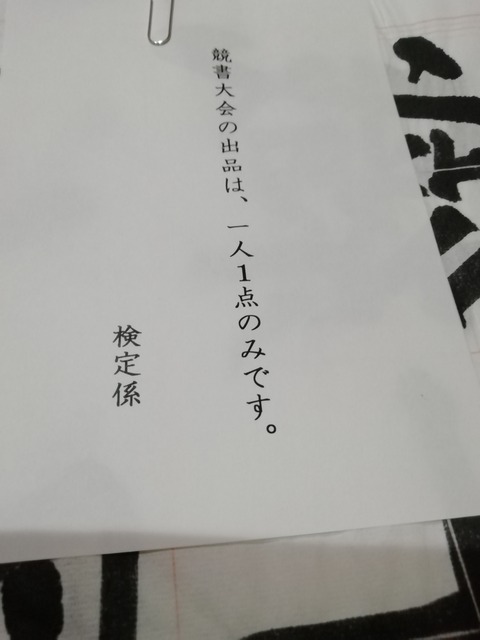 競書大会の出品は、一人1点のみです。
検定係